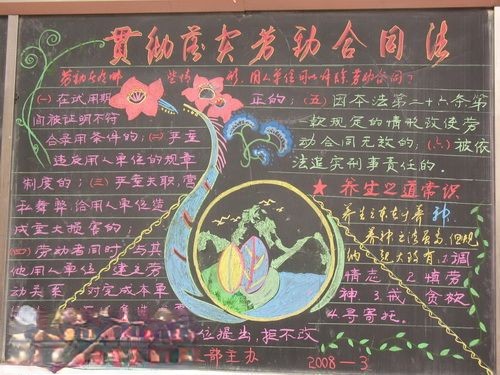 贯彻落实劳动合同法
劳动者有哪些情形,用人单位可以解除劳动合同?
(一)在试用期
间被证明不符
合录用条件的;(二)严重
违反用人单位的规章
制度的;(三)严重失职,营
私舞弊,给用人单位造
成重大损害的;
(四)劳动者同时与其
他用人单位建立劳
动关系,对完成本单
位提出,拒不改
正的;(五)因本法第二十六条第
一款规定的情形致使劳
动合同无效的;(六)被依
法追究刑事责任的。
★养生之道常识
养生之本在于养神,
养神之法虽多,但归
纳起大致有:1.调
情志 2.慎劳
神 3.戒贪欲
4.寻寄托。
部主办
2008-3